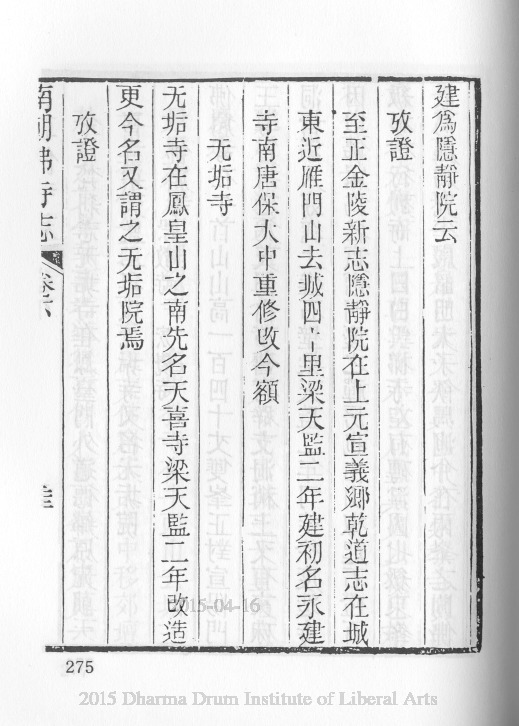 建爲隱靜院云
攷證
至正金陵新志隱靜院在上元宣義鄉乾道志在城
東近雁門山去城四十里梁天監二年建初名永建
寺南唐保大中重修改今額
无垢寺
无垢寺在鳳皇山之南先名天喜寺梁天監二年改造
更今名又謂之无垢院焉
攷證
南朝佛寺志 卷六
275
2015-04-16
2015 Dharma Drum Institute of Liberal Arts